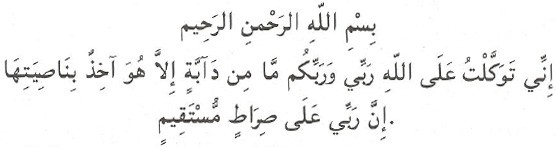 بِسْمِ اللّهِ الرَحْمنِ الرَحِيم
إِنِّي تَوَكَّلْتُ عَلَى اللّهِ رَبِّي وَرَبِّكُم مَّا مِن دَآبَّةٍ إِلاَّ هُوَ آخِذٌ بِنَاصِيَتِهَا
إِنَّ رَبِّي عَلَى صِرَاطٍ مُّسْتَقِيمٍ.